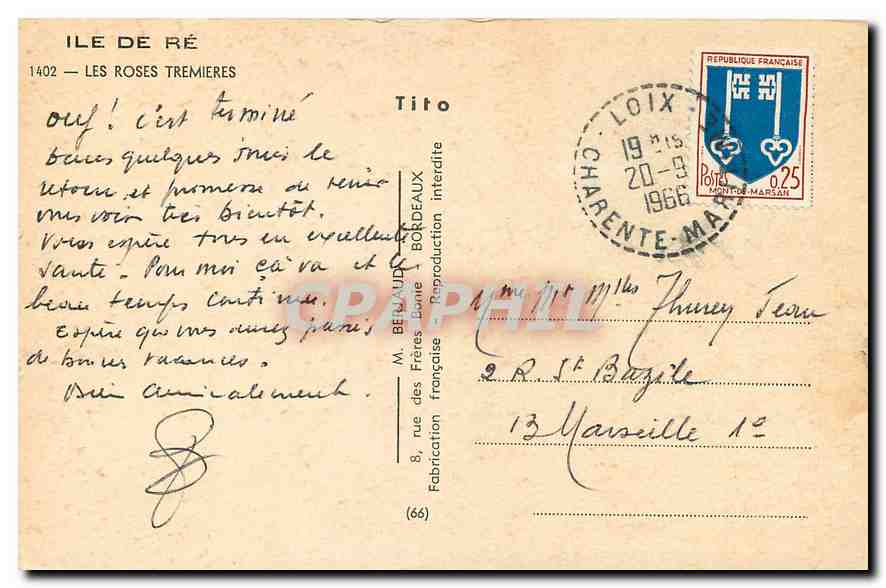 ILE DE RÉ
1402 — LES ROSES TREMIERES
ouf! c'est terminé
dans quelques jours le
retour et promesse de venir
vous voir très bientôt.
Vous espère tous en excellente
santé. Pour moi ça va et le
beau temps continue.
Espère que vous aurez passé
de bonnes vacances.
Bien amicalement.
Tito
M. BERJAUD
8, rue des Frères Bonie BORDEAUX
Fabrication française - Reproduction interdite
(66)
REPUBLIQUE FRANÇAISE
POSTES 0,25
MONT-DE-MARSAN
LOIX
19
20-9
1966
CHARENTE-MAR
Mme Mr Mlles Jean
2 R. St Bazile
13 Marseille 1e
CPAPHIL